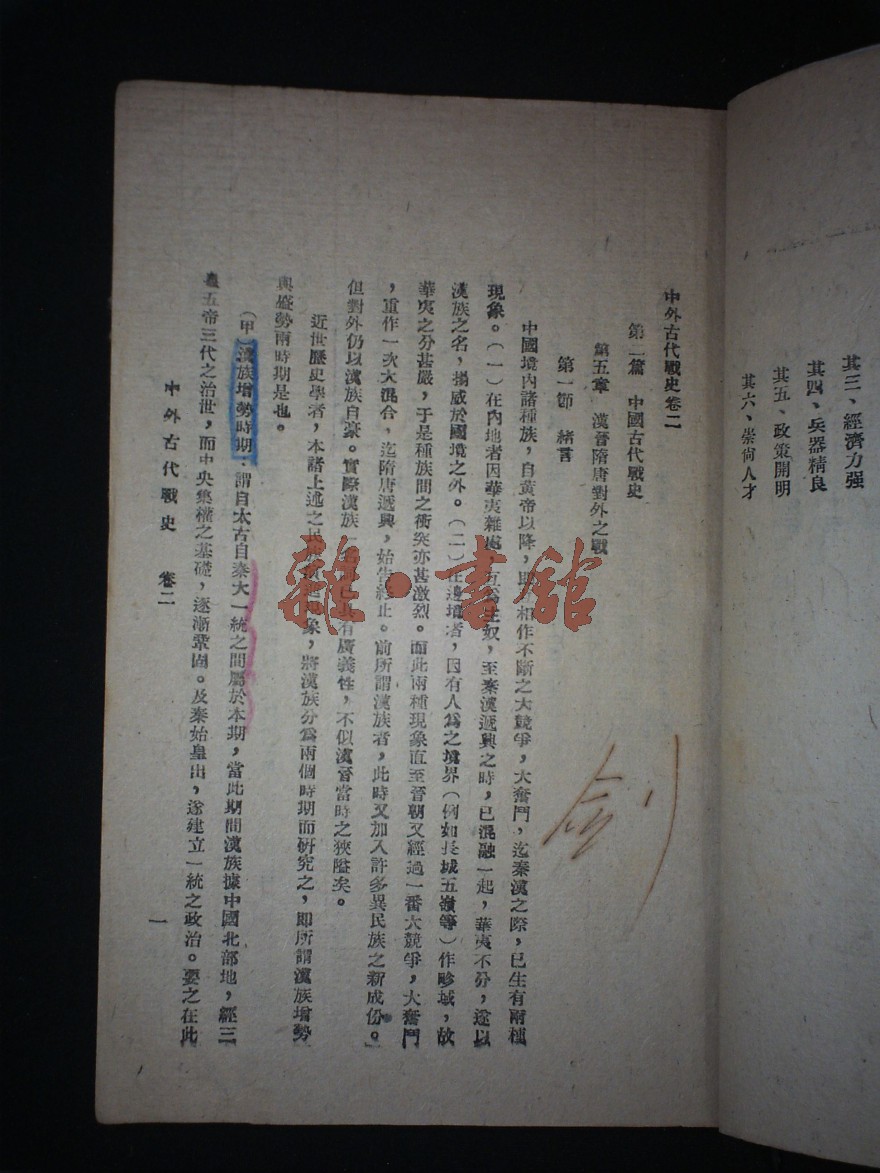 其三、經濟力强
其四、兵器精良
其五、政策開明
其六、崇尚人才
中外古代戰史卷二
第二篇　中國古代戰史
第五章　漢晉隋唐對外之戰
第一節　緒言
中國境内諸種族，自黃帝以降，即互相作不斷之大競爭，大奮鬥，迄秦漢之際，已生有兩種
現象。（一）在内地者因華夷雜處，互爲主奴，至秦漢遞興之時，已混融一起，華夷不分，遂以
漢族之名，揚威於國境之外。（二）在邊境者，因有人爲之境界（例如長城五嶺等）作畛域，故
華夷之分甚嚴，于是種族間之衝突亦甚激烈。而此兩種現象直至晉朝又經過一番大競爭，大奮鬥
，重作一次大混合，迄隋唐遞興，始告終止。前所謂漢族者，此時又加入許多異民族之新成份。
但對外仍以漢族自豪。實際漢族一名詞已具有廣義性，不似漢晉當時之狹隘矣。
近世歷史學者，本諸上述之民族演進現象，將漢族分爲兩個時期而研究之，即所謂漢族增勢
與盛勢兩時期是也。
（甲）漢族增勢時期：謂自太古自秦大一統之間屬於本期，當此期間漢族據中國北部地，經三
皇五帝三代之治世，而中央集權之基礎，逐漸鞏固。及秦始皇出，遂建立一統之政治。要之在此
中外古代戰史　卷二
一
雜·書館
剑